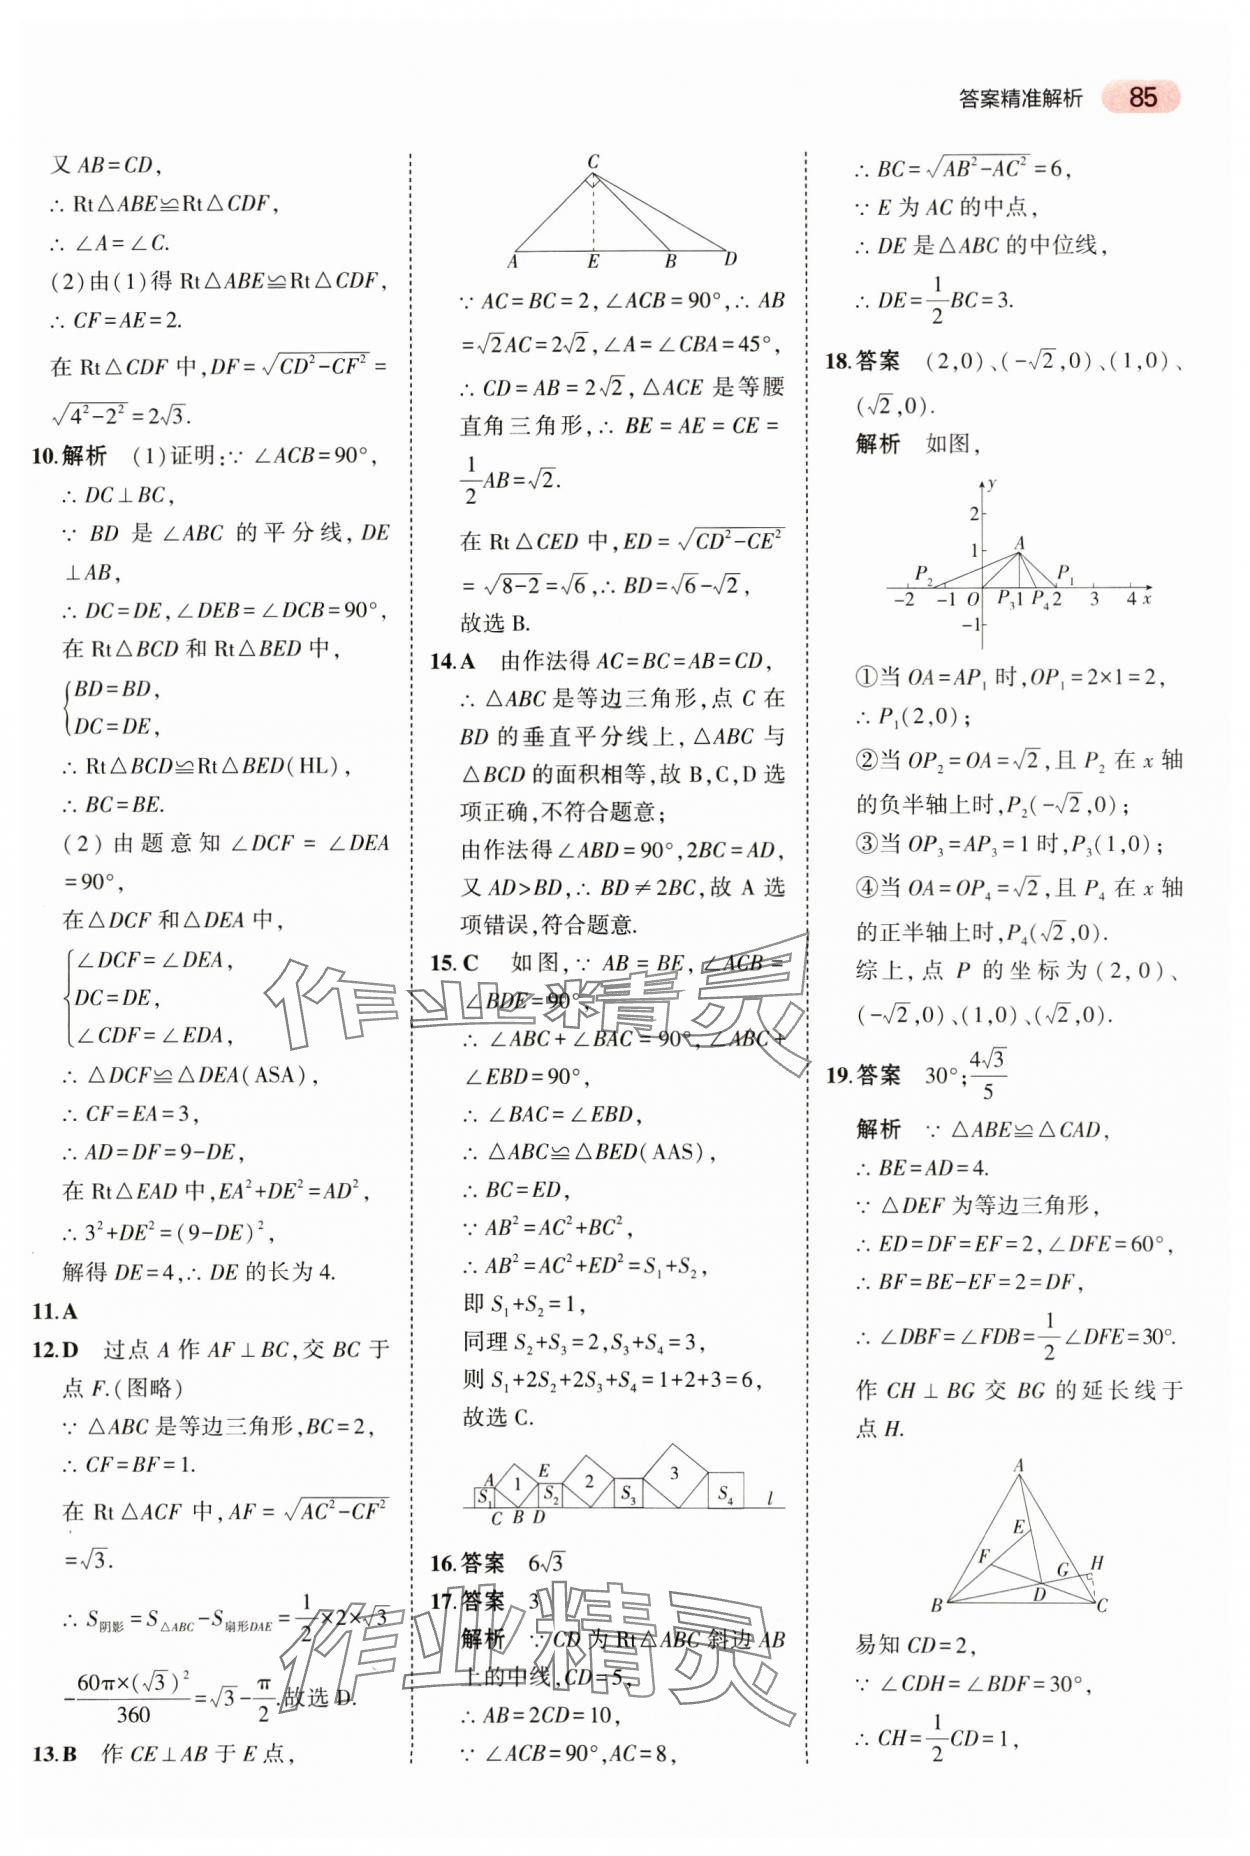 答案精准解析 85
又 AB=CD,
∴ Rt△ABE≌Rt△CDF,
∴ ∠A=∠C.
(2)由(1)得 Rt△ABE≌Rt△CDF,
∴ CF=AE=2.
在 Rt△CDF 中,DF=√(CD²-CF²)=
√(4²-2²)=2√3.
10.解析 (1)证明:∵ ∠ACB=90°,
∴ DC⊥BC,
∵ BD 是 ∠ABC 的平分线,DE
⊥AB,
∴ DC=DE,∠DEB=∠DCB=90°,
在 Rt△BCD 和 Rt△BED 中,
{BD=BD,
DC=DE,
∴ Rt△BCD≌Rt△BED(HL),
∴ BC=BE.
(2)由题意知 ∠DCF=∠DEA
=90°,
在△DCF 和△DEA 中,
{∠DCF=∠DEA,
DC=DE,
∠CDF=∠EDA,
∴ △DCF≌△DEA(ASA),
∴ CF=EA=3,
∴ AD=DF=9-DE,
在 Rt△EAD 中,EA²+DE²=AD²,
∴ 3²+DE²=(9-DE)²,
解得 DE=4,∴ DE 的长为 4.
11.A
12.D 过点 A 作 AF⊥BC,交 BC 于
点 F.(图略)
∵ △ABC 是等边三角形,BC=2,
∴ CF=BF=1.
在 Rt△ACF 中,AF=√(AC²-CF²)
=√3.
∴ S阴影=S△ABC-S扇形DAE=1/2×2×√3
-60π×(√3)²/360=√3-π/2.故选 D.
13.B 作 CE⊥AB 于 E 点,
C
A E B D
∵ AC=BC=2,∠ACB=90°,∴ AB
=√2AC=2√2,∠A=∠CBA=45°,
∴ CD=AB=2√2,△ACE 是等腰
直角三角形,∴ BE=AE=CE=
1/2AB=√2.
在 Rt△CED 中,ED=√(CD²-CE²)
=√(8-2)=√6,∴ BD=√6-√2,
故选 B.
14.A 由作法得 AC=BC=AB=CD,
∴ △ABC 是等边三角形,点 C 在
BD 的垂直平分线上,△ABC 与
△BCD 的面积相等,故 B,C,D 选
项正确,不符合题意;
由作法得∠ABD=90°,2BC=AD,
又 AD>BD,∴ BD≠2BC,故 A 选
项错误,符合题意.
15.C 如图,∵ AB=BE,∠ACB=
∠BDE=90°,
∴ ∠ABC+∠BAC=90°,∠ABC+
∠EBD=90°,
∴ ∠BAC=∠EBD,
∴ △ABC≌△BED(AAS),
∴ BC=ED,
∵ AB²=AC²+BC²,
∴ AB²=AC²+ED²=S₁+S₂,
即 S₁+S₂=1,
同理 S₂+S₃=2,S₃+S₄=3,
则 S₁+2S₂+2S₃+S₄=1+2+3=6,
故选 C.
A 1 E 2 3
S₁ S₂ S₃ S₄ l
C B D
16.答案 6√3
17.答案 3
解析 ∵ CD 为 Rt△ABC 斜边 AB
上的中线,CD=5,
∴ AB=2CD=10,
∵ ∠ACB=90°,AC=8,
∴ BC=√(AB²-AC²)=6,
∵ E 为 AC 的中点,
∴ DE 是△ABC 的中位线,
∴ DE=1/2BC=3.
18.答案 (2,0)、(-√2,0)、(1,0)、
(√2,0).
解析 如图,
y
2
1 A
P₂ P₁
-2 -1 O P₃1 P₄2 3 4 x
-1
①当 OA=AP₁ 时,OP₁=2×1=2,
∴ P₁(2,0);
②当 OP₂=OA=√2,且 P₂ 在 x 轴
的负半轴上时,P₂(-√2,0);
③当 OP₃=AP₃=1 时,P₃(1,0);
④当 OA=OP₄=√2,且 P₄ 在 x 轴
的正半轴上时,P₄(√2,0).
综上,点 P 的坐标为(2,0)、
(-√2,0)、(1,0)、(√2,0).
19.答案 30°;4√3/5
解析 ∵ △ABE≌△CAD,
∴ BE=AD=4.
∵ △DEF 为等边三角形,
∴ ED=DF=EF=2,∠DFE=60°,
∴ BF=BE-EF=2=DF,
∴ ∠DBF=∠FDB=1/2∠DFE=30°.
作 CH⊥BG 交 BG 的延长线于
点 H.
A
E
F G H
D
B C
易知 CD=2,
∵ ∠CDH=∠BDF=30°,
∴ CH=1/2CD=1,
作业精灵
作业精灵